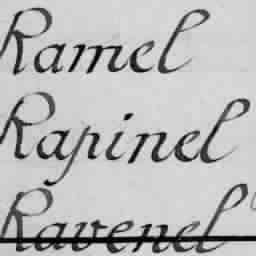 Ramel
Rapinel
Ravenel